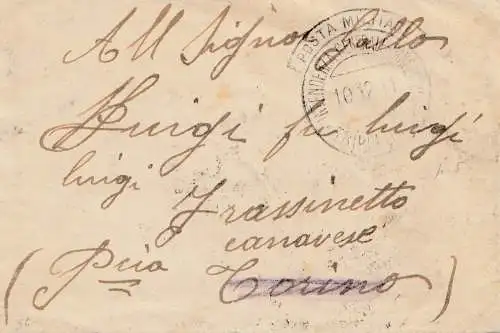 All Signor Gallo
POSTA MILITARE
INTENDENZA
10.12.11
Luigi fu luigi
luigi
Frassinetto
canavese
(Pcia Torino)